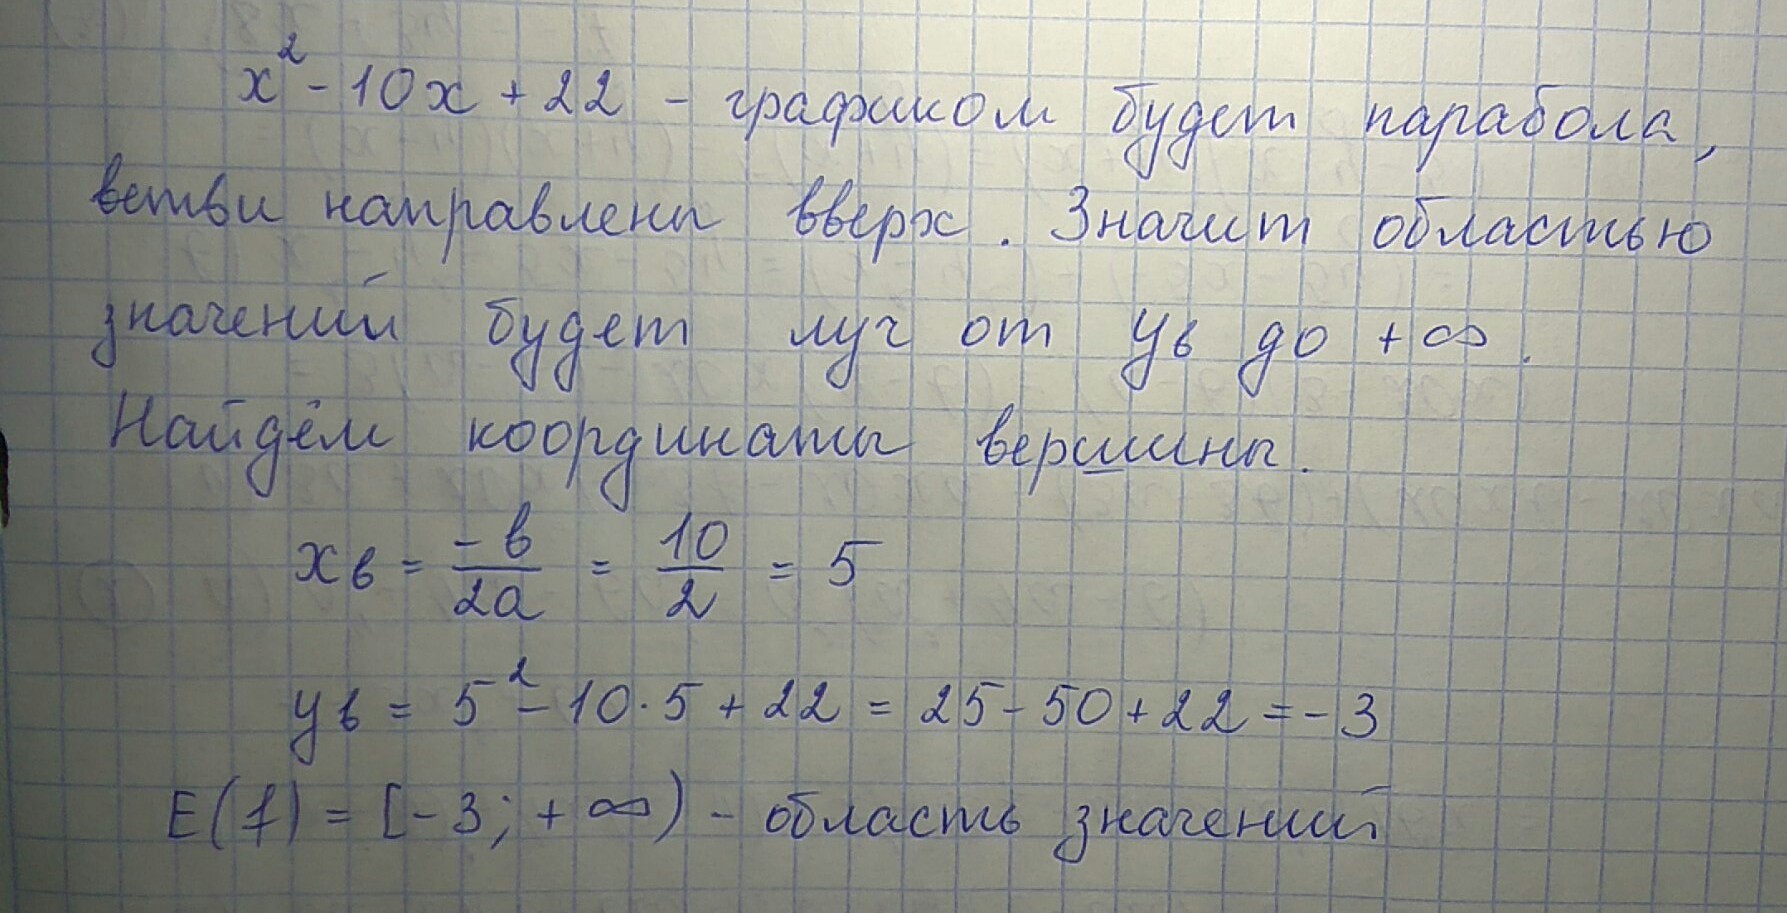 x² - 10x + 22 - графиком будет парабола,
ветви направлены вверх. Значит областью
значений будет луч от yв до +∞.
Найдём координаты вершины.
xв = -b/2a = 10/2 = 5
yв = 5² - 10·5 + 22 = 25 - 50 + 22 = -3
E(f) = [-3; +∞) - область значений